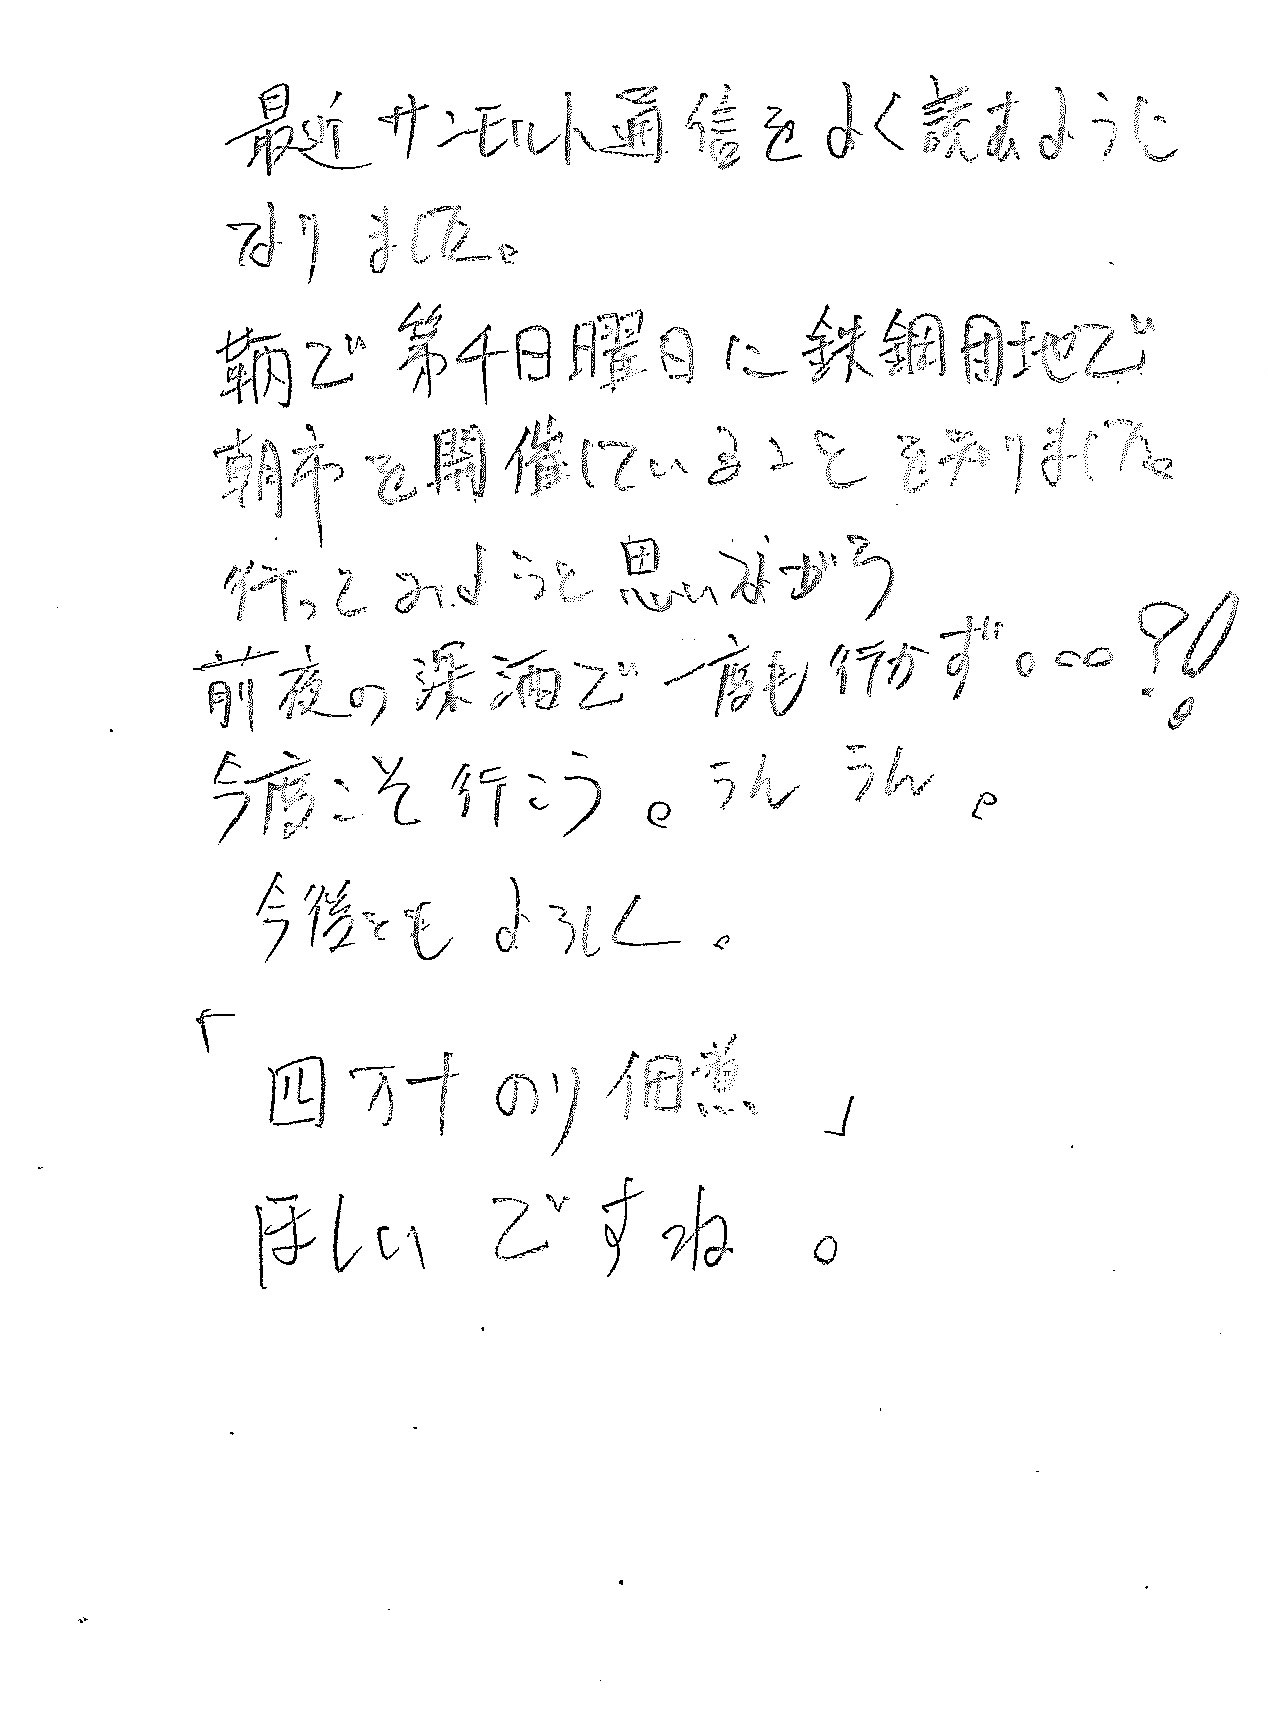 最近サンモルト通信をよく読むように
なりました。
鞆で第4日曜日に鉄鋼団地で
朝市を開催していることを知りました。
行ってみようと思いながら
前夜の深酒で一度も行かず。。。?!
今度こそ行こう。うんうん。
今後ともよろしく。
「四万十のり佃煮」
ほしいですね。